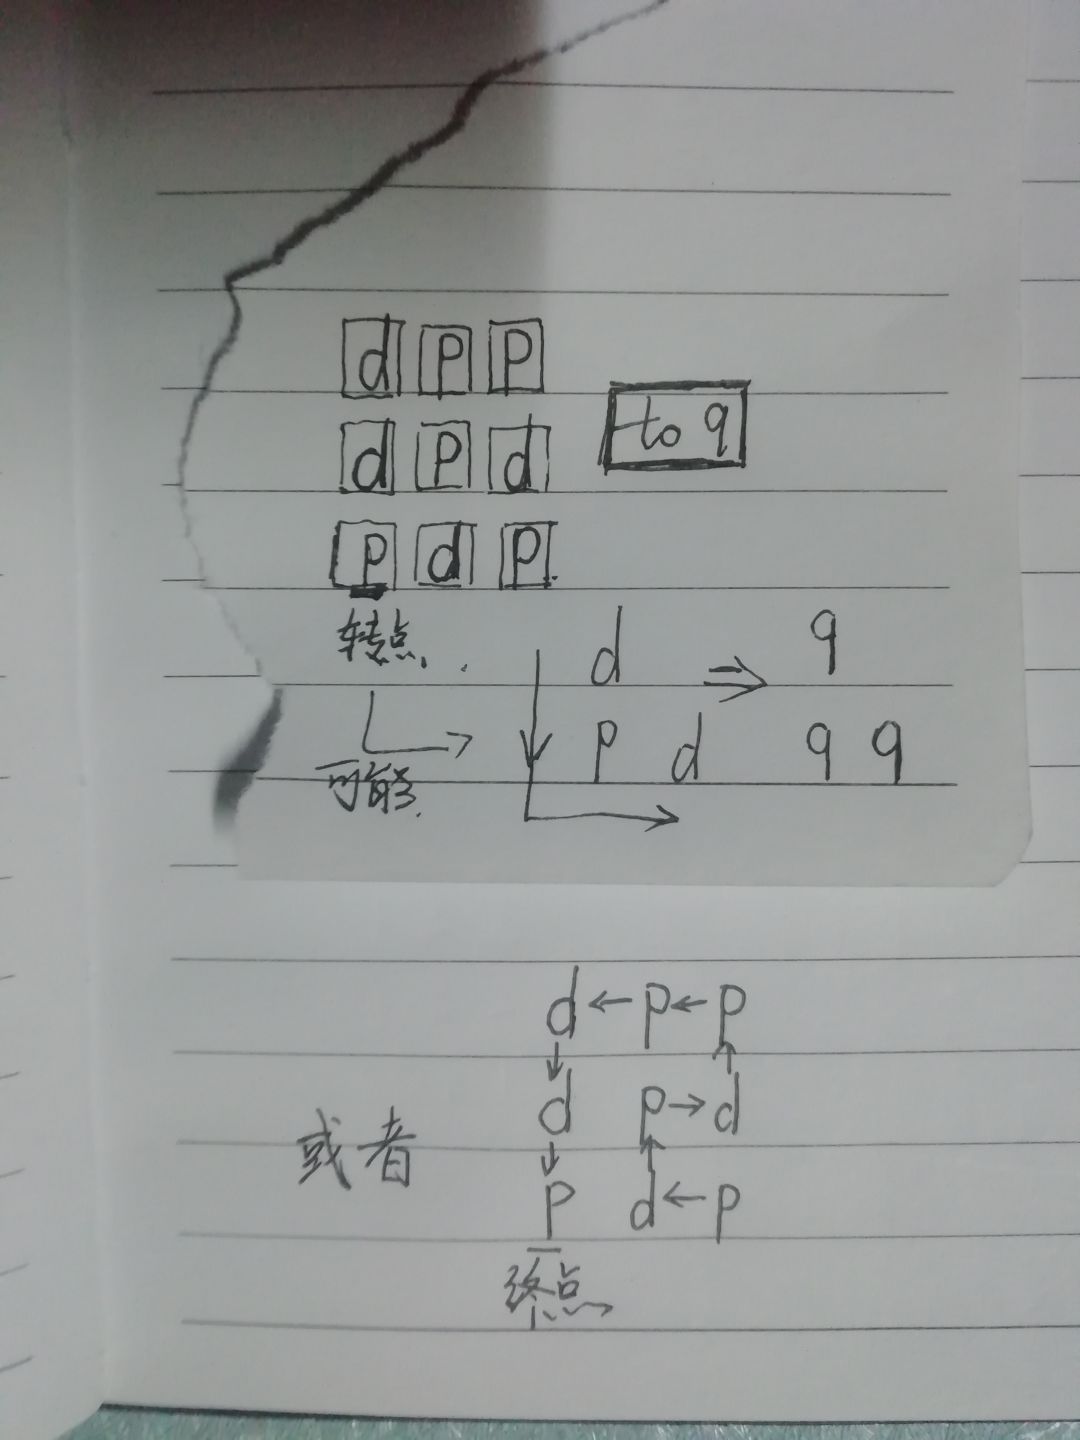 d p p
d p d to q
p d p.
转点.
d ⇒ q
p d q q
可能.
d ← p ← p
↓ ↑
d p → d
或者
↓ ↑
p d ← p
终点